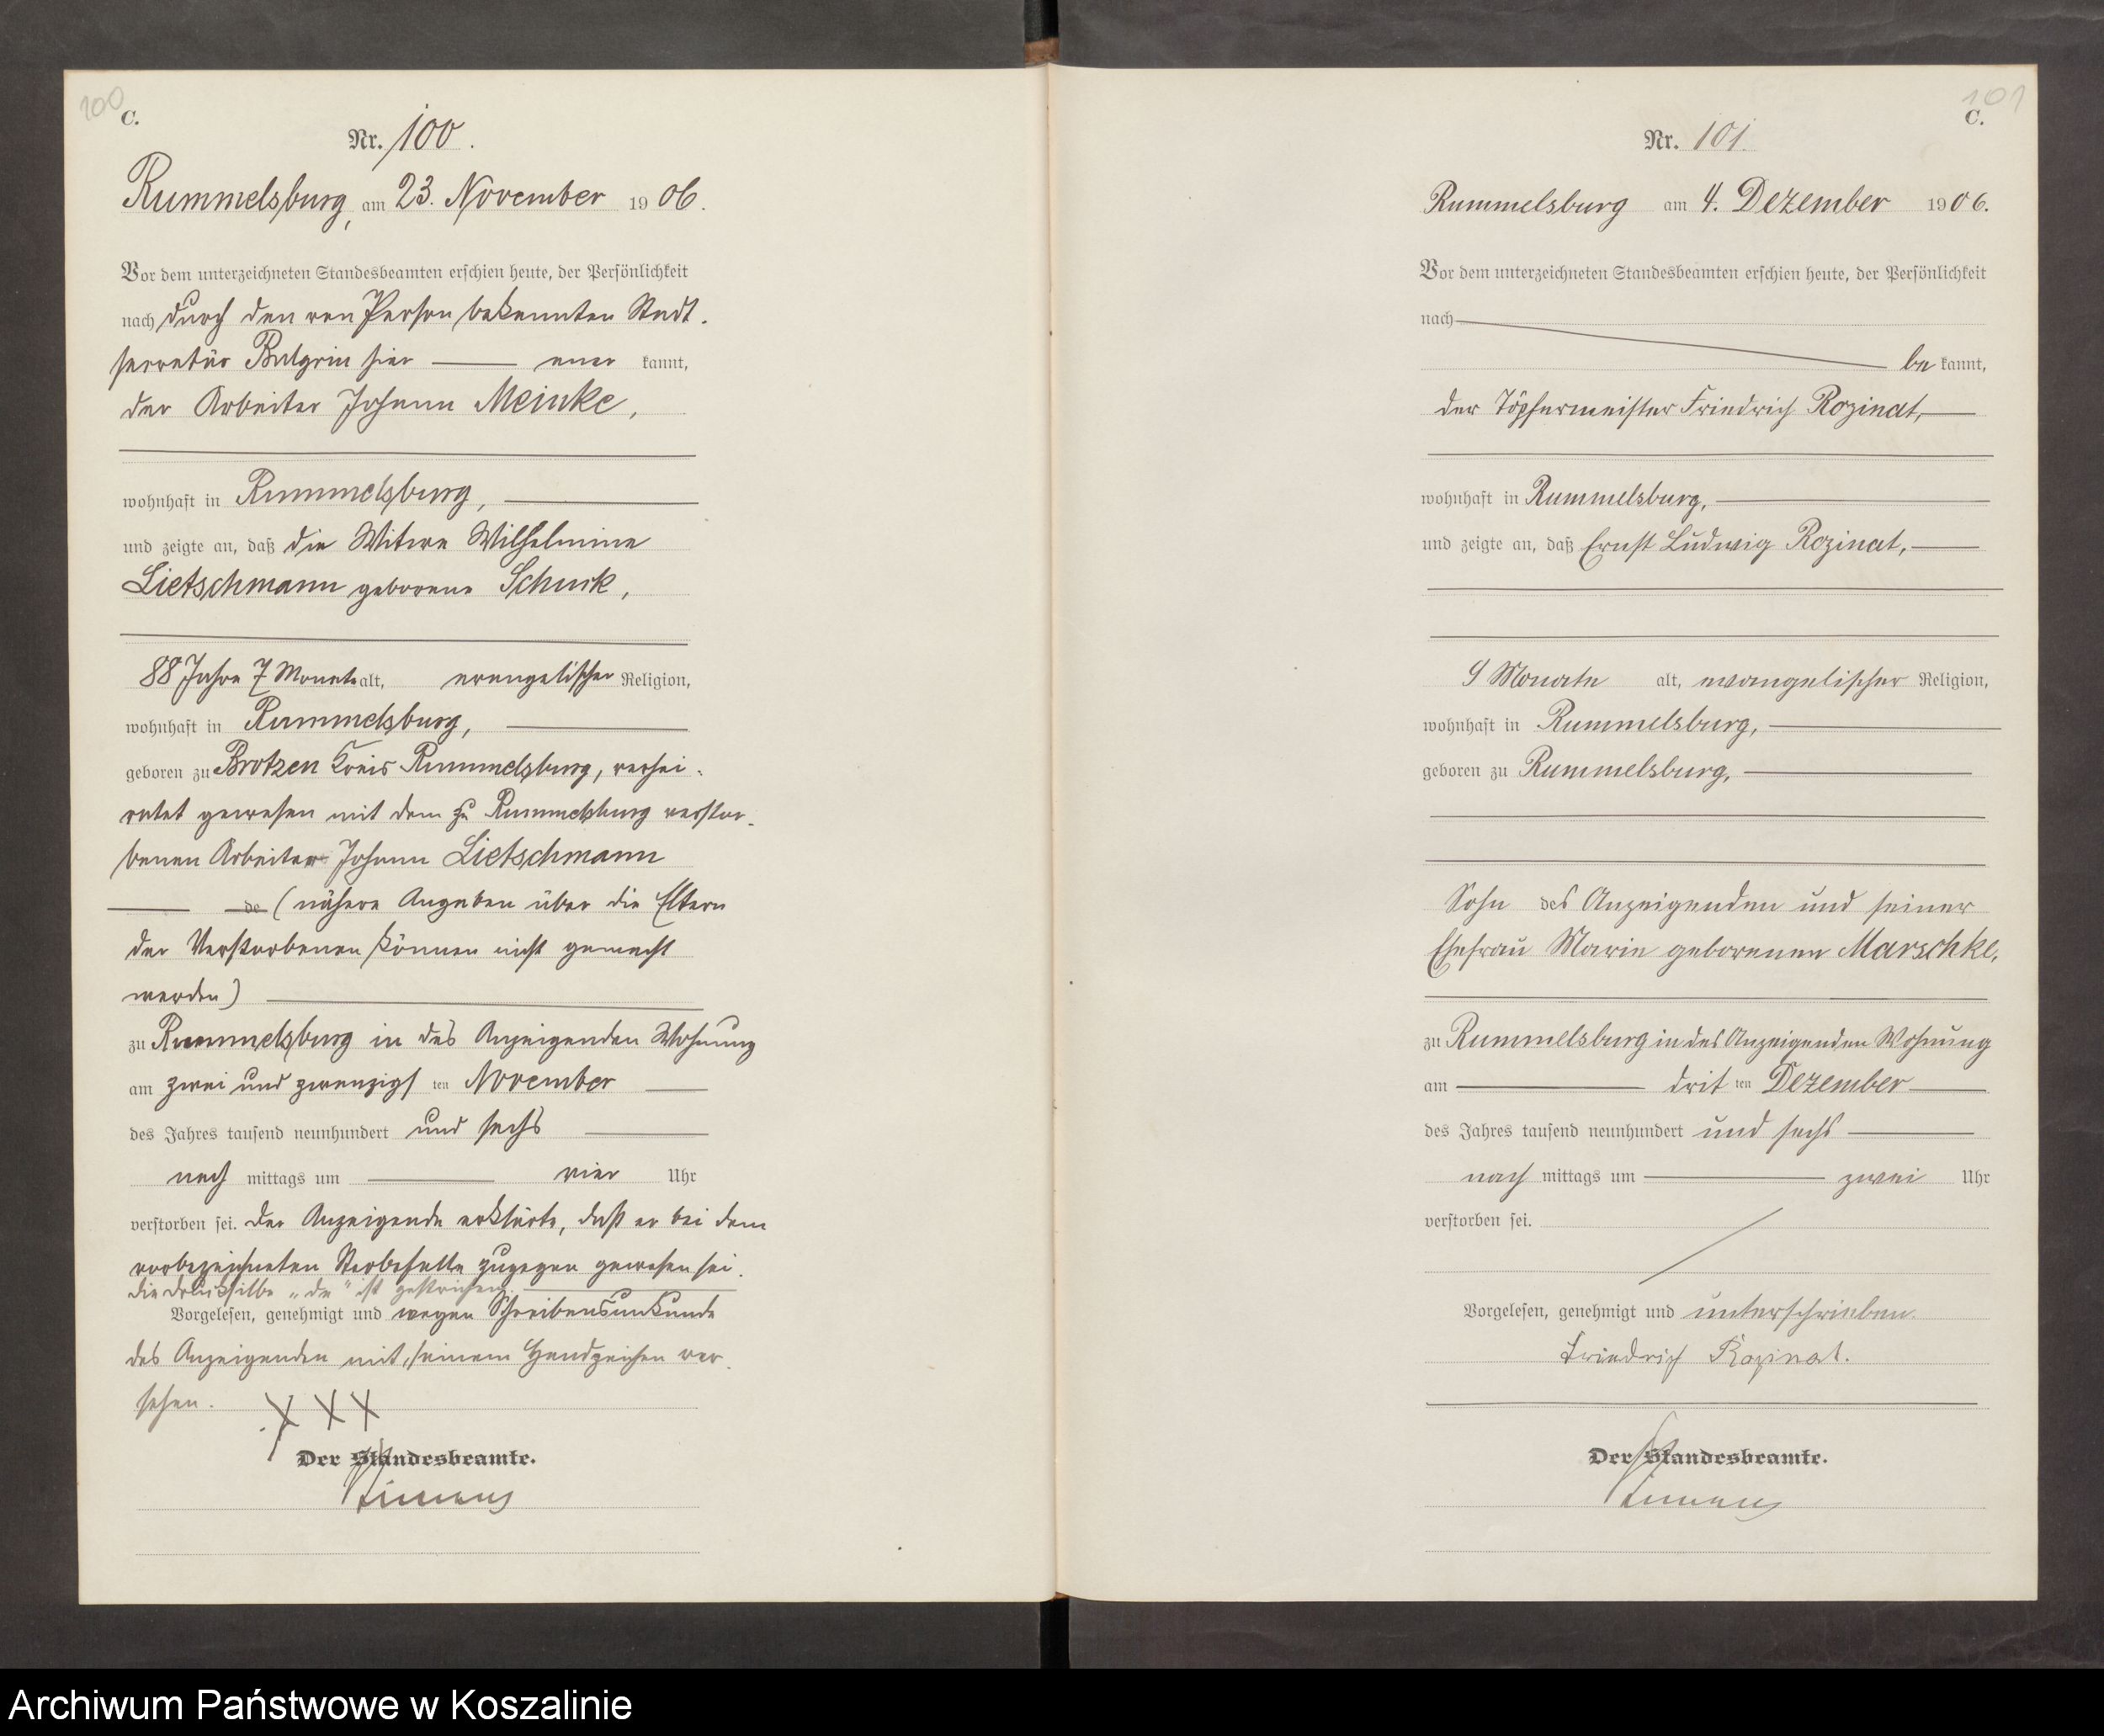 100
C.
Nr. 100.
Rummelsburg, am 23. November 1906.
Vor dem unterzeichneten Standesbeamten erschien heute, der Persönlichkeit
nach durch den von Person bekannten Stadt-
secretär hier aner kannt,
der Arbeiter Johann Meinke,
wohnhaft in Rummelsburg,
und zeigte an, daß die Witwe Wilhelmine
Lietschmann geborene
88 Jahre 7 Monate alt, evangelischer Religion,
wohnhaft in Rummelsburg,
geboren zu Brotzen Kreis Rummelsburg, verhei-
ratet gewesen mit dem zu Rummelsburg verstor-
benen Arbeiter Johann Lietschmann
de (nähere Angaben über die Eltern
der Verstorbenen können nicht gemacht
werden)
zu Rummelsburg in des Anzeigenden Wohnung
am zwei und zwanzigsten November
des Jahres tausend neunhundert und sechs
nach mittags um vier Uhr
verstorben sei. Der Anzeigende erklärte, daß er bei dem
vorbezeichneten Sterbefalle zugegen gewesen sei.
Die Drucksilbe „de" ist gestrichen.
Vorgelesen, genehmigt und wegen Schreibensunkunde
des Anzeigenden mit seinem Handzeichen ver-
sehen.
XXX
Der Standesbeamte.
101
C.
Nr. 101.
Rummelsburg am 4. Dezember 1906.
Vor dem unterzeichneten Standesbeamten erschien heute, der Persönlichkeit
nach
be kannt,
der Töpfermeister Friedrich Rozinat,
wohnhaft in Rummelsburg,
und zeigte an, daß Ernst Ludwig Rozinat,
9 Monate alt, evangelischer Religion,
wohnhaft in Rummelsburg,
geboren zu Rummelsburg,
Sohn des Anzeigenden und seiner
Ehefrau Marie geborenen Marschke,
zu Rummelsburg in des Anzeigenden Wohnung
am dritten Dezember
des Jahres tausend neunhundert und sechs
nach mittags um zwei Uhr
verstorben sei.
Vorgelesen, genehmigt und unterschrieben.
Friedrich Rozinat.
Der Standesbeamte.
Archiwum Państwowe w Koszalinie